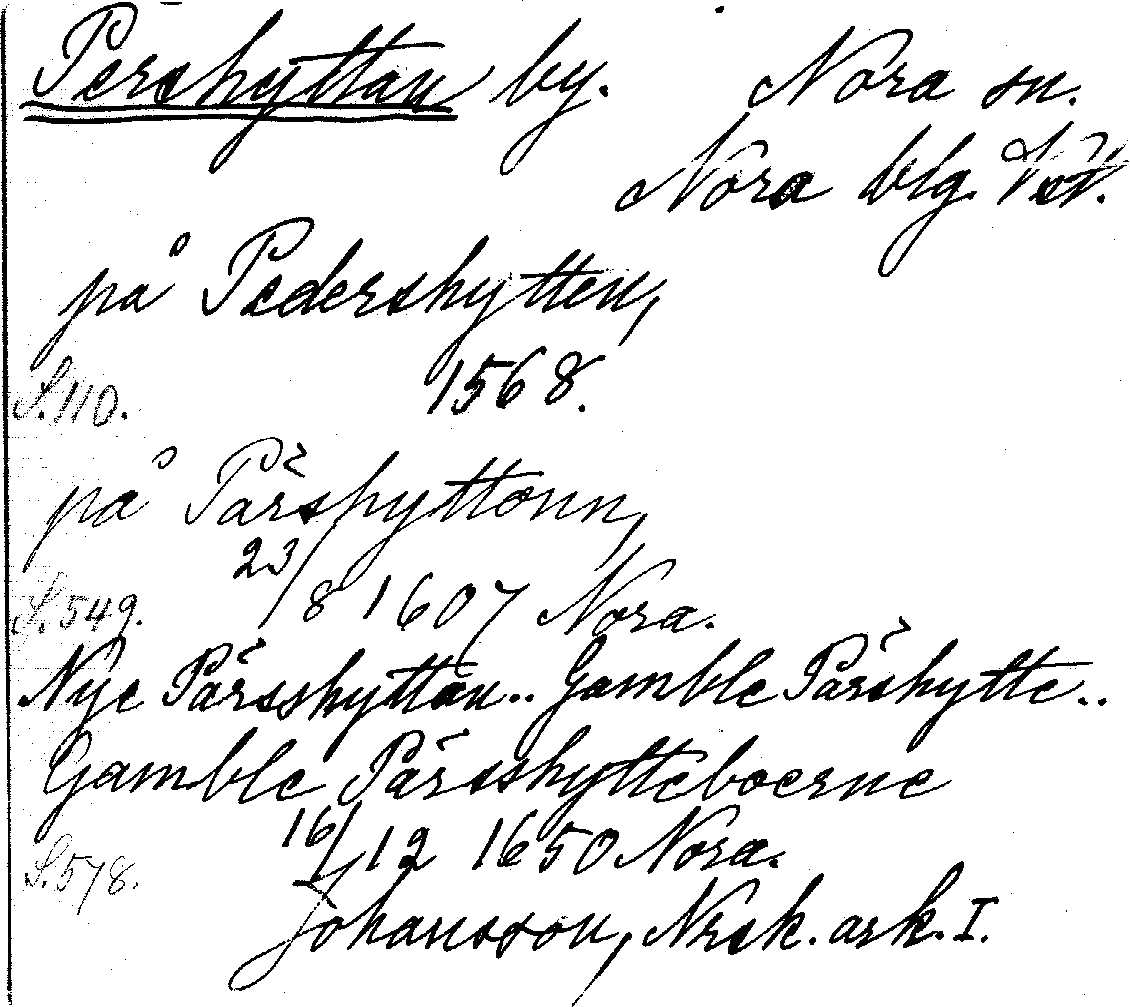 Pershyttan by. Nora sn.
Nora blg. Vstm.
på Pedershytten,
S. 110. 1568.
på Pärshyttonn,
S. 549. 23/8 1607 Nora.
Nye Pärsshyttan.. Gamble Pärshytte..
Gamble Pärsshytteboerne
S. 578. 16/12 1650 Nora.
Johansson, Nrsk. ark. I.